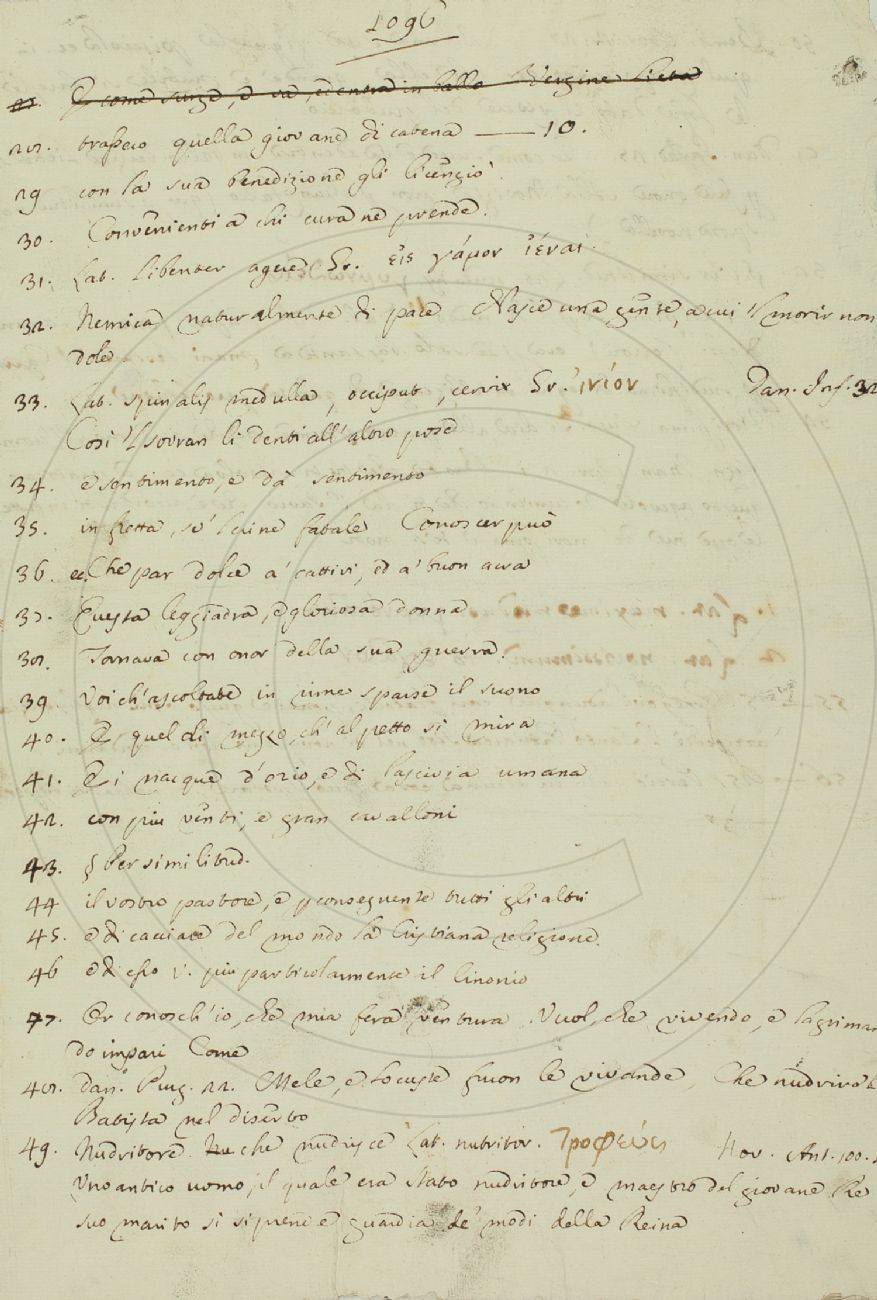 1096
E come surge, e va, ed entra in ballo Vergine lieta
28. trafisero quella giovane di catena —— 10.
29 con la sua benedizione gli licenziò
30. Convenienti a chi cura ne prende.
31. Lat. libenter agere Gr. εἰς γάμον ἰέναι.
32. Nemica naturalmente di pace Nasce una gente, a cui 'l morir non
dole
33. Lat. spinalis medulla, occiput, cervix Gr. ἰνίον Dan. Inf. 32
Così 'l sovran li denti all'altro pose
34. e sentimento, e dà sentimento
35. in fretta, se 'l fine fatale Conoscer può
36. ec. Che par dolce a' cattivi, ed a' buon acra
37. Questa leggiadra, e gloriosa donna
38. Tornava con onor della sua guerra.
39. Voi ch'ascoltate in rime sparse il suono
40. E quel di mezzo, ch'al petto si mira
41. Ei nacque d'ozio, e di lascivia umana
42. con più venti, e gran cavalloni
43. § Per similitud.
44 il vostro pastore, e p conseguente tutti gli altri
45. e di cacciare del mondo la Cristiana religione.
46 e di esso v. più particolarmente il
47. Or conosch'io, che mia fera ventura Vuol, che vivendo, e lagriman
do impari Come
48. Dan. Purg. 22. Mele, e locuste furon le vivande, Che nudriro
Batista nel diserto
49. Nudritore. Nu che nudrisce Lat. nutritor. Τροφεύς Nov. Ant. 100.
Uno antico uomo, il quale era stato nudritore, e maestro del giovane Re
suo marito si si prende guardia de' modi della Reina